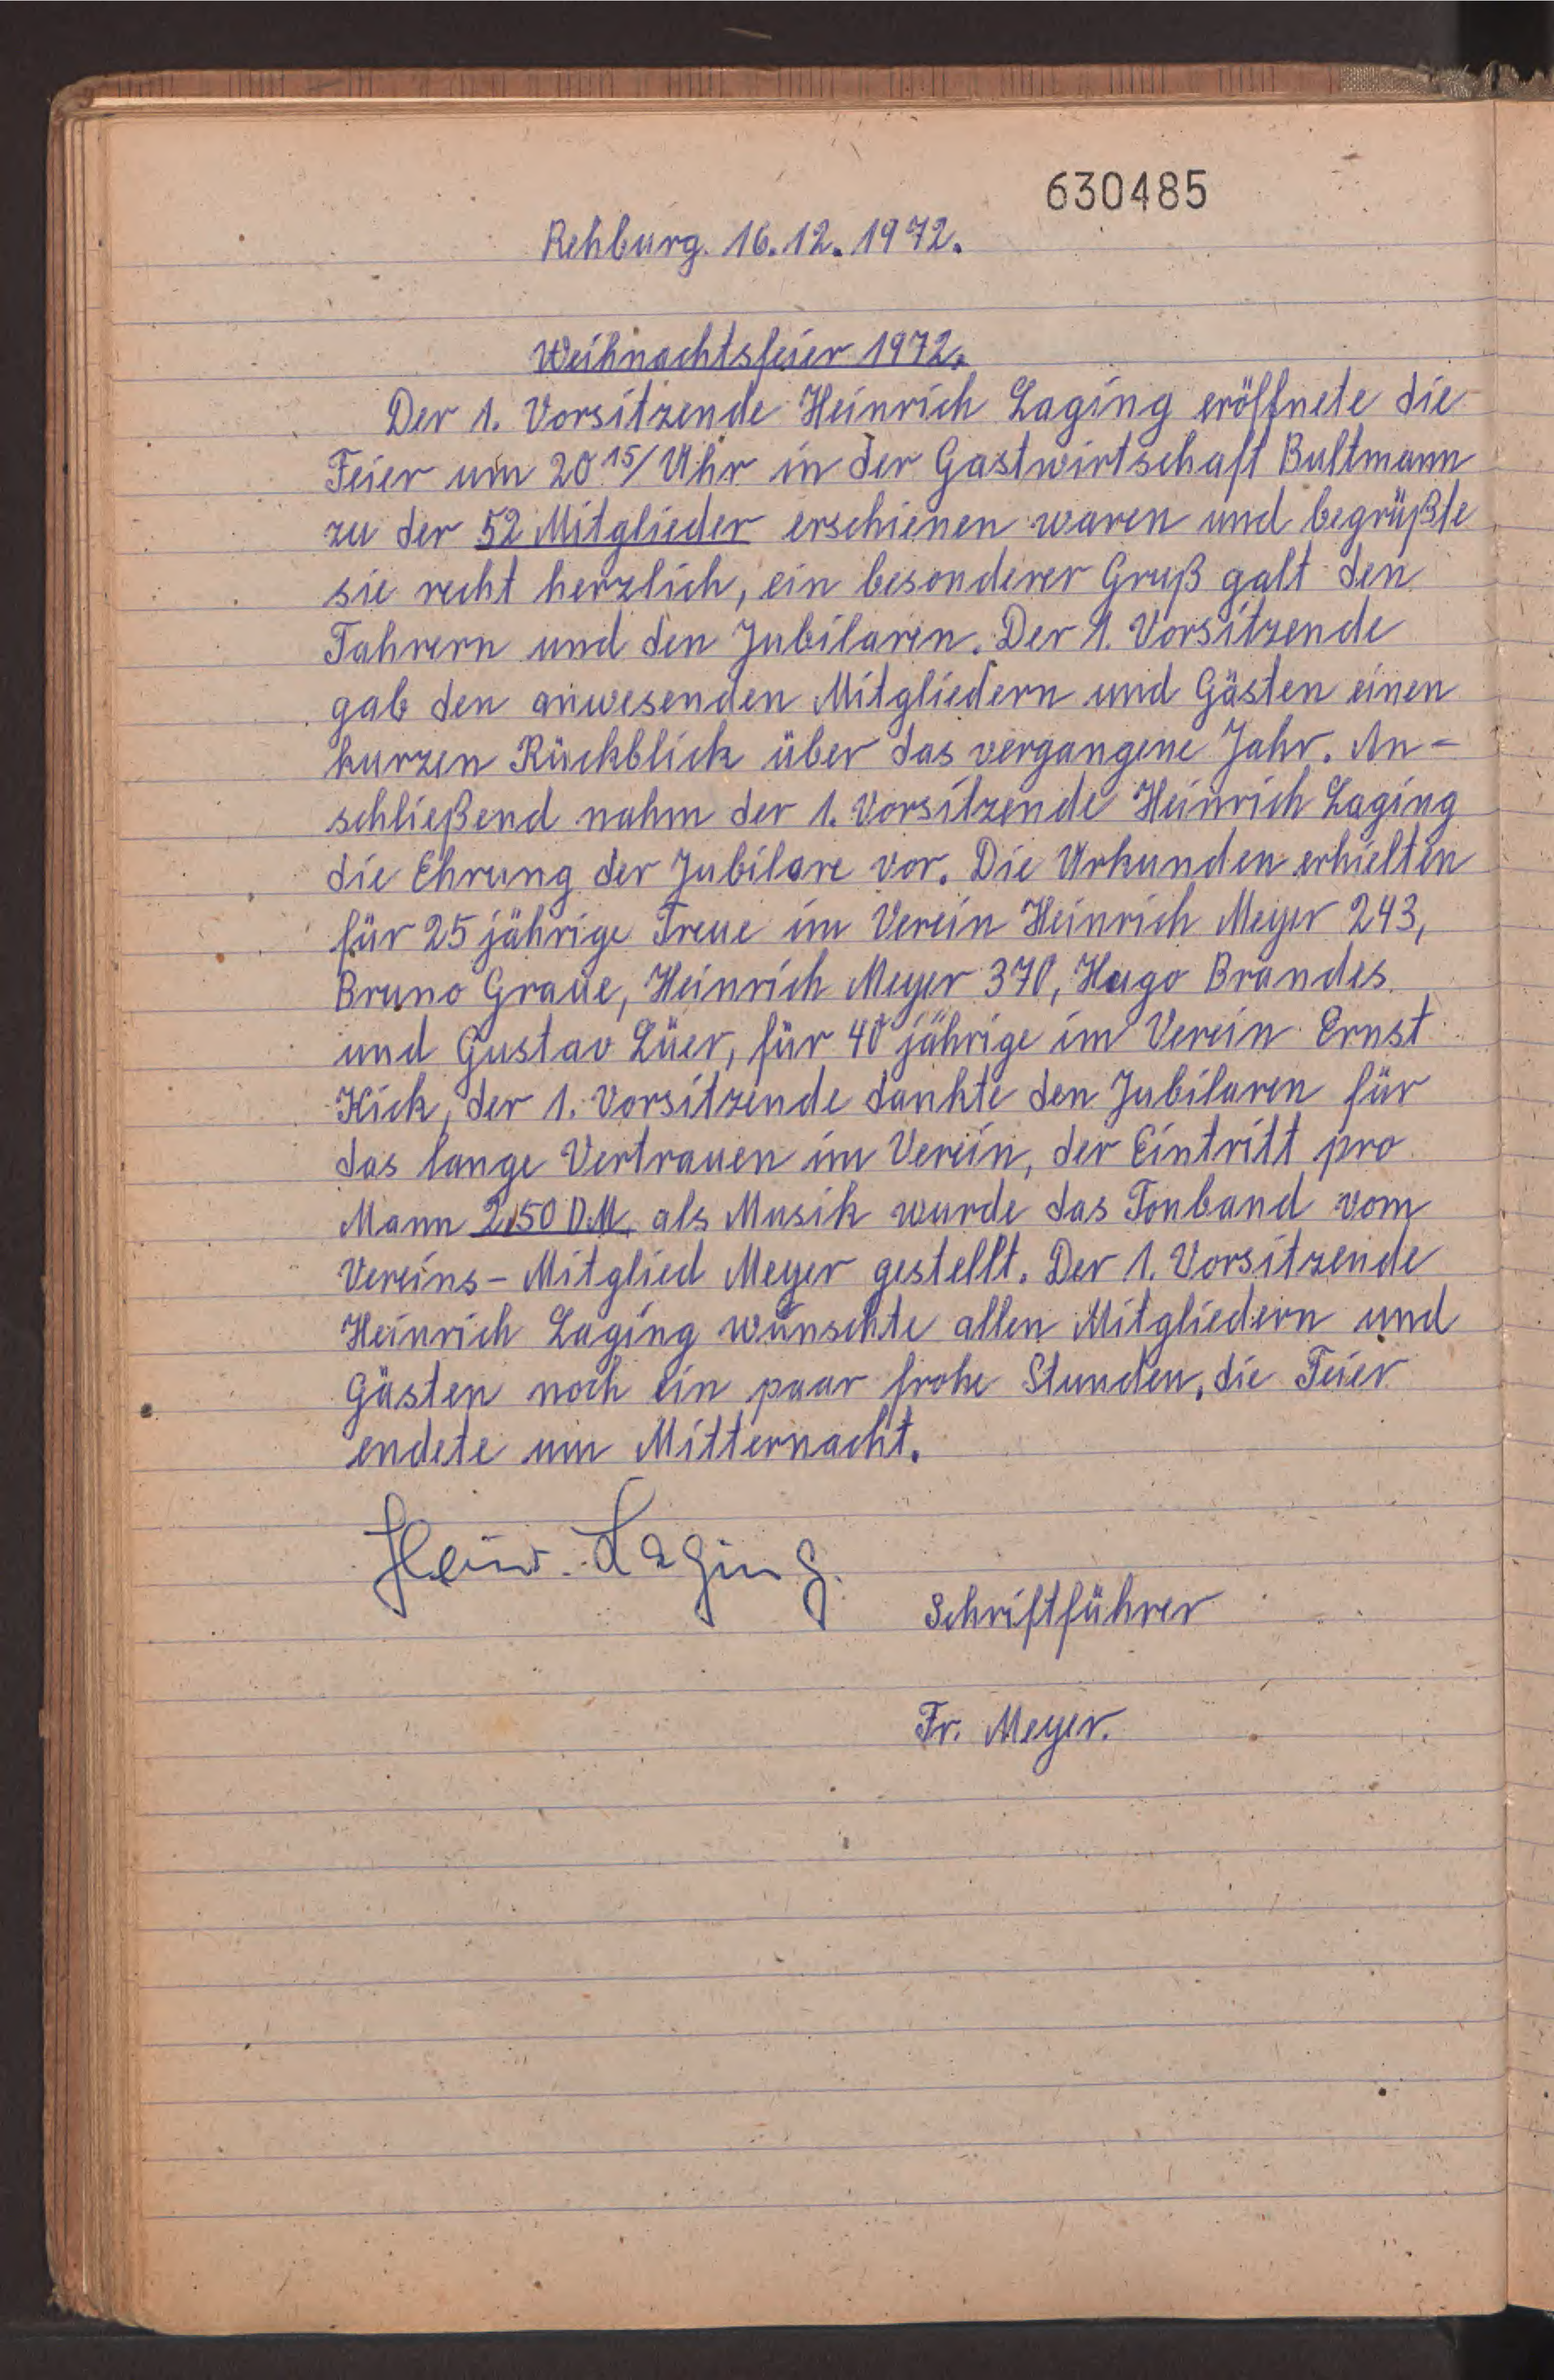 630485
Rehburg. 16.12.1972.
Weihnachtsfeier 1972.
Der 1. Vorsitzende Heinrich Laging eröffnete die
Feier um 20 15/ Uhr in der Gastwirtschaft Bultmann
zu der 52 Mitglieder erschienen waren und begrüßte
sie recht herzlich, ein besonderer Gruß galt den
Fahrern und den Jubilaren. Der 1. Vorsitzende
gab den anwesenden Mitgliedern und Gästen einen
kurzen Rückblick über das vergangene Jahr. An-
schließend nahm der 1. Vorsitzende Heinrich Laging
die Ehrung der Jubilare vor. Die Urkunden erhielten
für 25 jährige Treue im Verein Heinrich Meyer 243,
Bruno Graue, Heinrich Meyer 370, Hugo Brandes
und Gustav Lüer, für 40 jährige im Verein Ernst
Kick, der 1. Vorsitzende dankte den Jubilaren für
das lange Vertrauen im Verein, der Eintritt pro
Mann 2,50 DM. als Musik wurde das Tonband vom
Vereins-Mitglied Meyer gestellt. Der 1. Vorsitzende
Heinrich Laging wünschte allen Mitgliedern und
Gästen noch ein paar frohe Stunden, die Feier
endete um Mitternacht.
Heinr. Laging.
Schriftführer
Fr. Meyer.